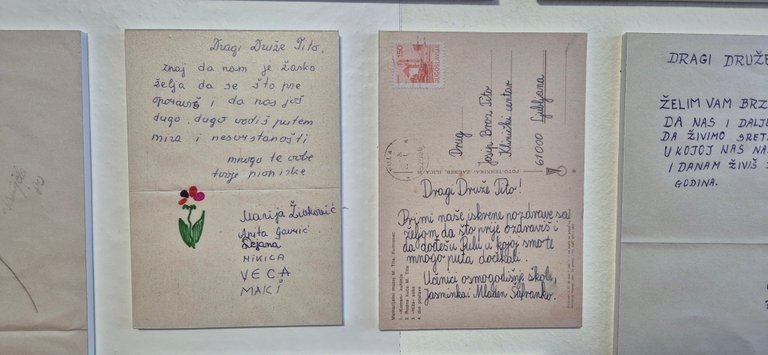 Dragi Druže Tito,
znaj da nam je žarko
želja da se što pre
oporaviš i da nas još
dugo, dugo vodiš putem
mira i nesvrstanosti
mnogo te vole
tvoje pionirke
Marija Živković
Anita Gavrić
Dejana
NIKICA
VECA
MAKI
150
JUGOSLAVIJA
Drug
Josip Broz Tito
Klinički centar
61000 Ljubljana
FOTO-TEHNIKA ZAGREB, ILICA
Dragi Druže Tito!
Primi naše iskrene pozdrave sa
željom da što prije ozdraviš i
da dođeš u Pulu u kojoj smo te
mnogo puta dočekali.
Učenici osmogodišnje škole
Jasminka i Mladen Šafranko.
DRAGI DRUŽE
ŽELIM VAM BRZ
DA NAS I DALJE
DA ŽIVIMO SRET
U KOJOJ NAS NA
I DANAM ŽIVIŠ
GODINA.